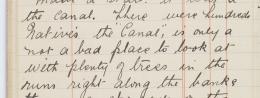 the Canal. There were hundreds
Natives the Canal, is only a
not a bad place to look at
with plenty of trees in the
runs right along the banks